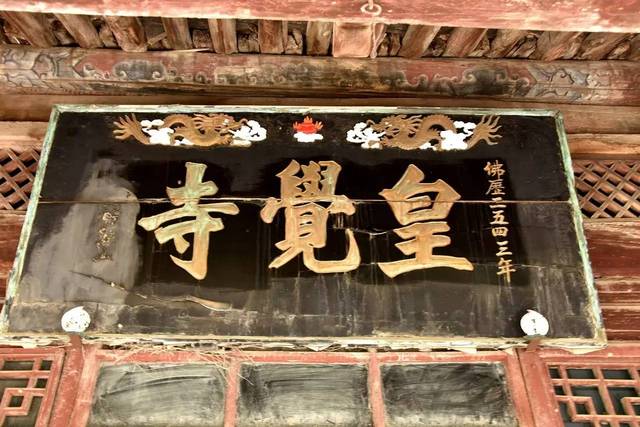 佛曆二五四三年
皇覺寺